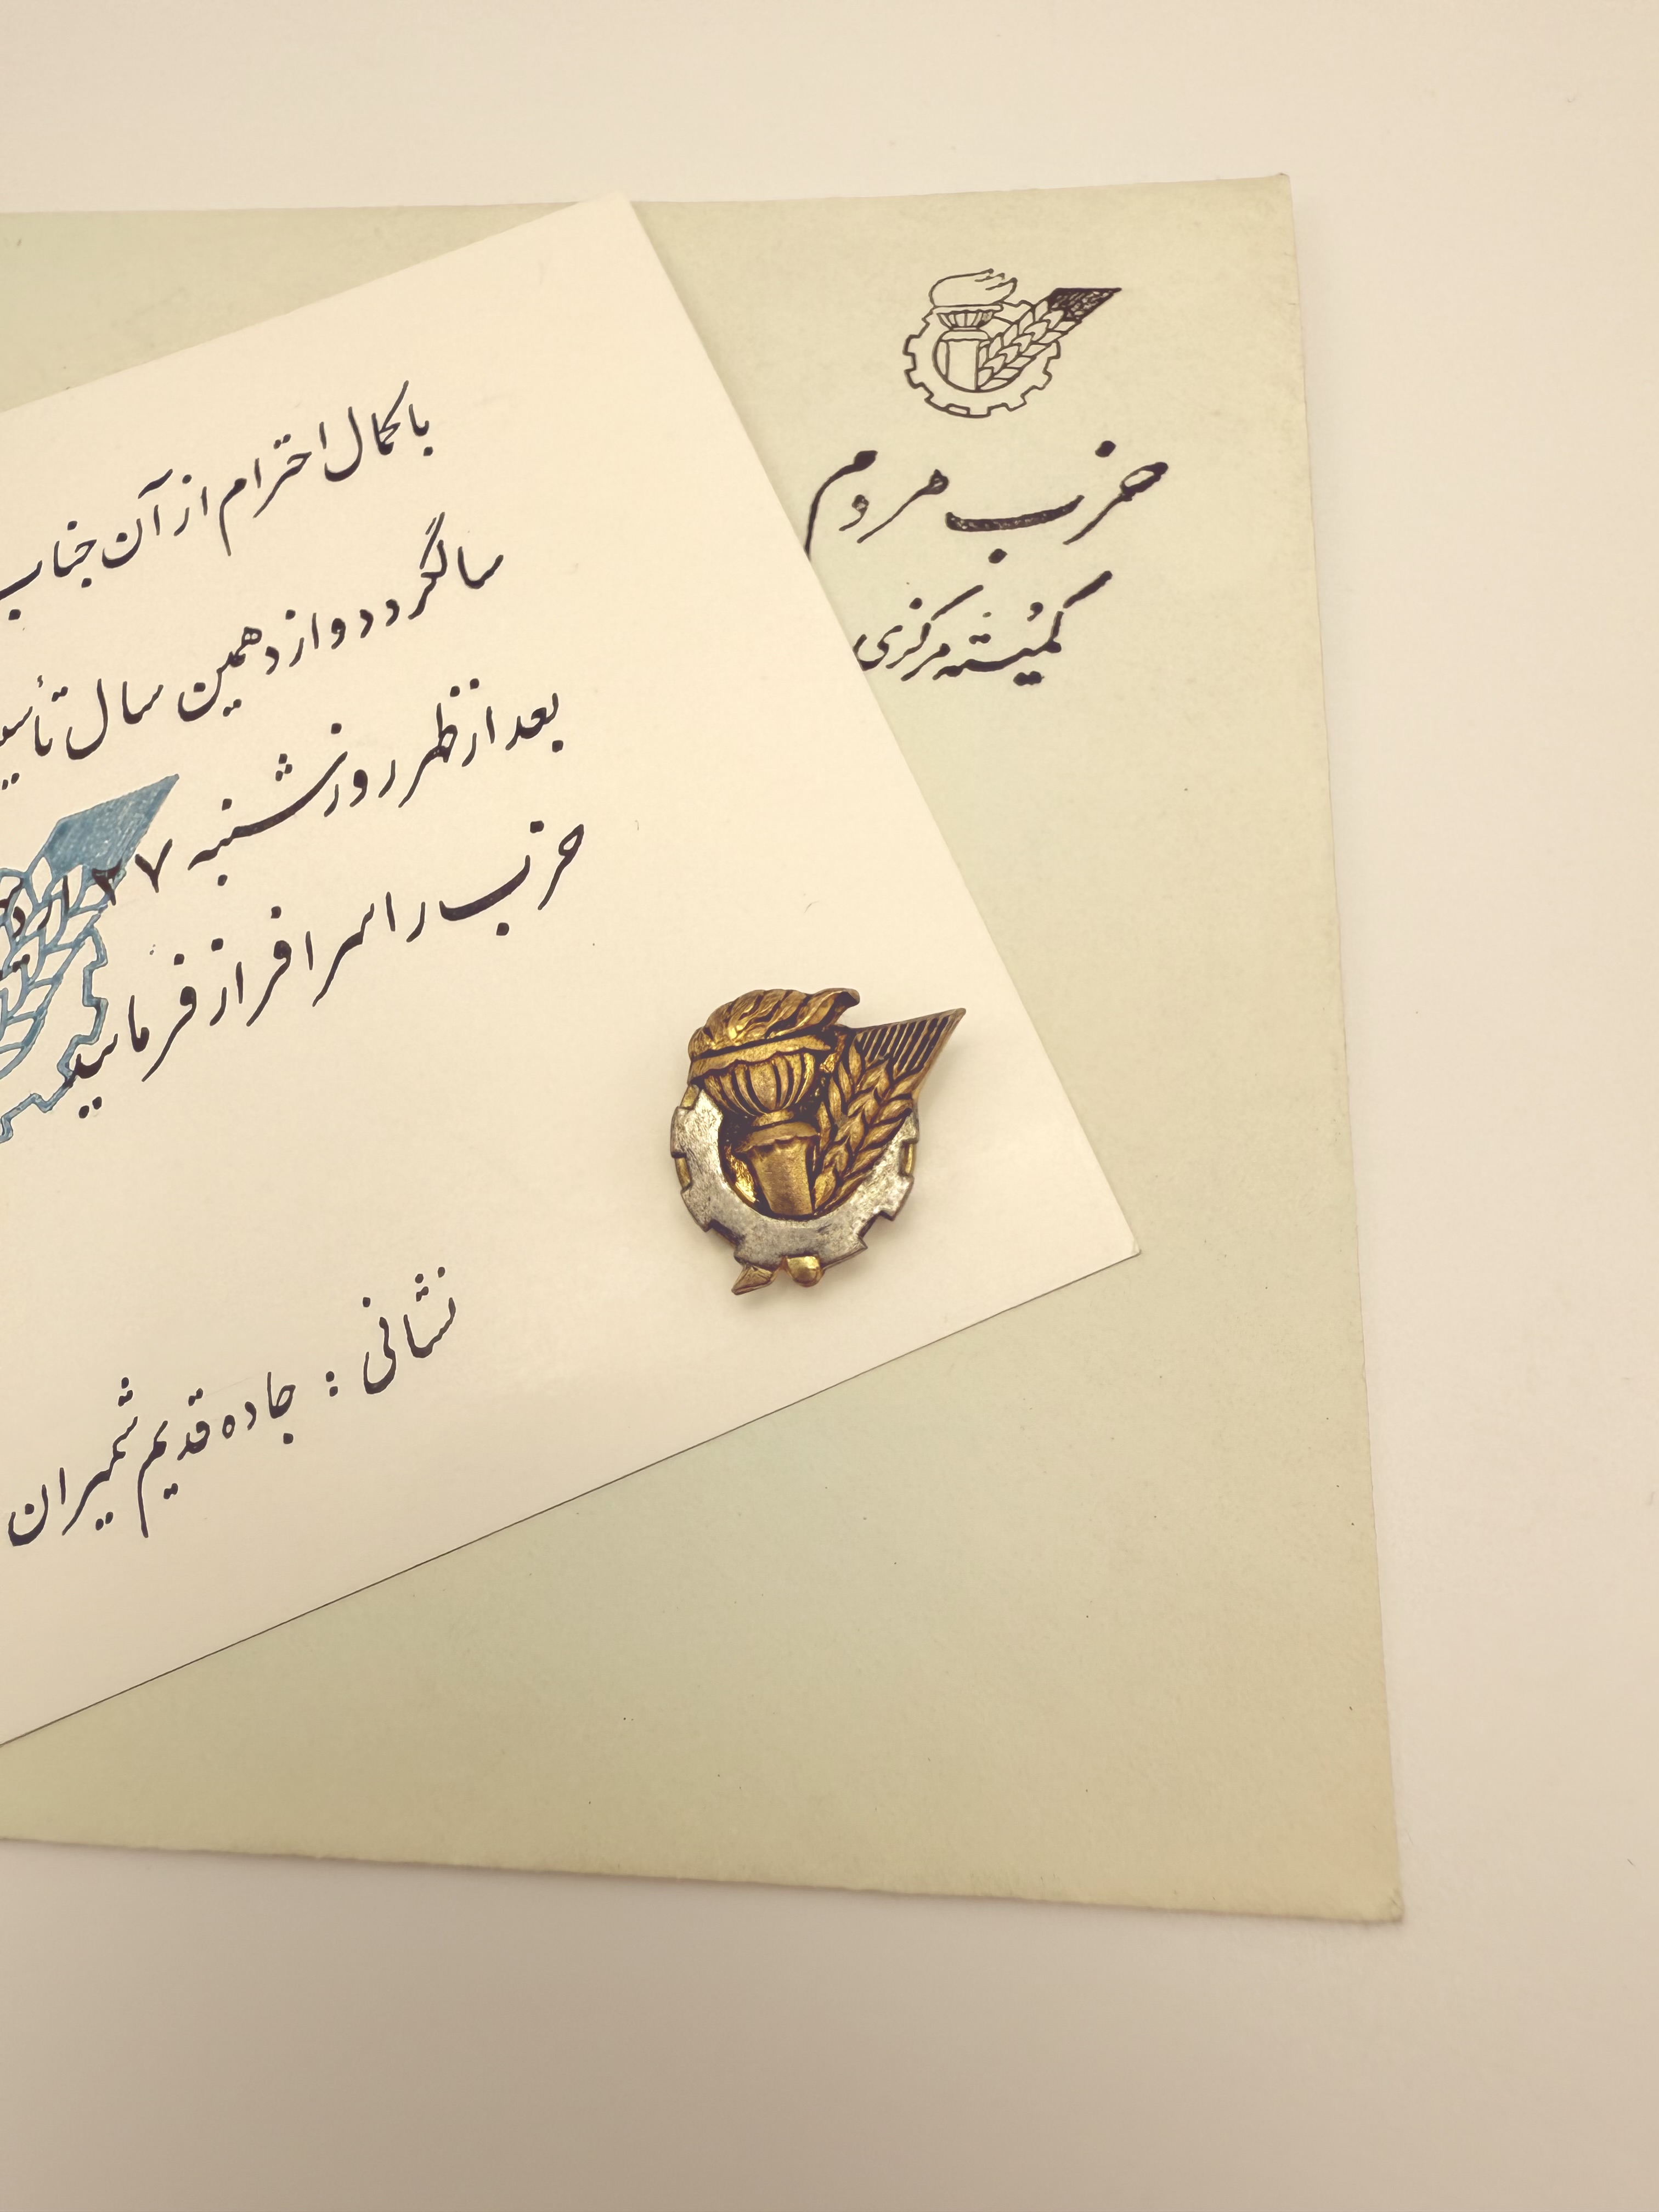 حزب مردم
کمیته مرکزی
با کمال احترام از آن جناب
سالگرد دوازدهمین سال تأسیس
بعد از ظهر روز شنبه ۲۷
حزب را سرافراز فرمایید
نشانی : جاده قدیم شمیران